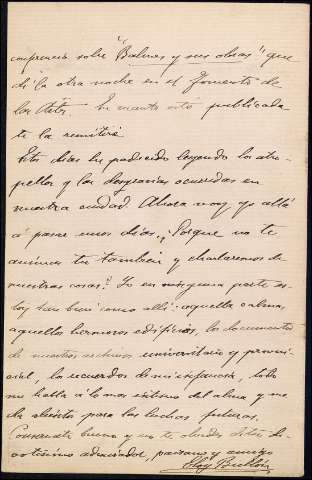 conferencia sobre "Balmes y sus obras" que
dí la otra noche en el Fomento de
las Artes. En cuanto esté publicada
te la remitiré.
Estos días he padecido leyendo los atro-
pellos y las desgracias ocurridas en
nuestra ciudad. Ahora voy yo allá
á pasar unos días. ¿Porque no te
animas tu tambien y charlaremos de
nuestras cosas? Yo en ninguna parte es-
toy tan bien como allí: aquella calma,
aquellos hermosos edificios, los documentos
de nuestros archivos universitario y provin-
cial, los recuerdos de mi infancia, todo
me habla á lo mas íntimo del alma y me
da aliento para las luchas futuras.
Consérvate bueno y no te olvides de tu de-
votísimo admirador, paisano y amigo
Eloy Bullón